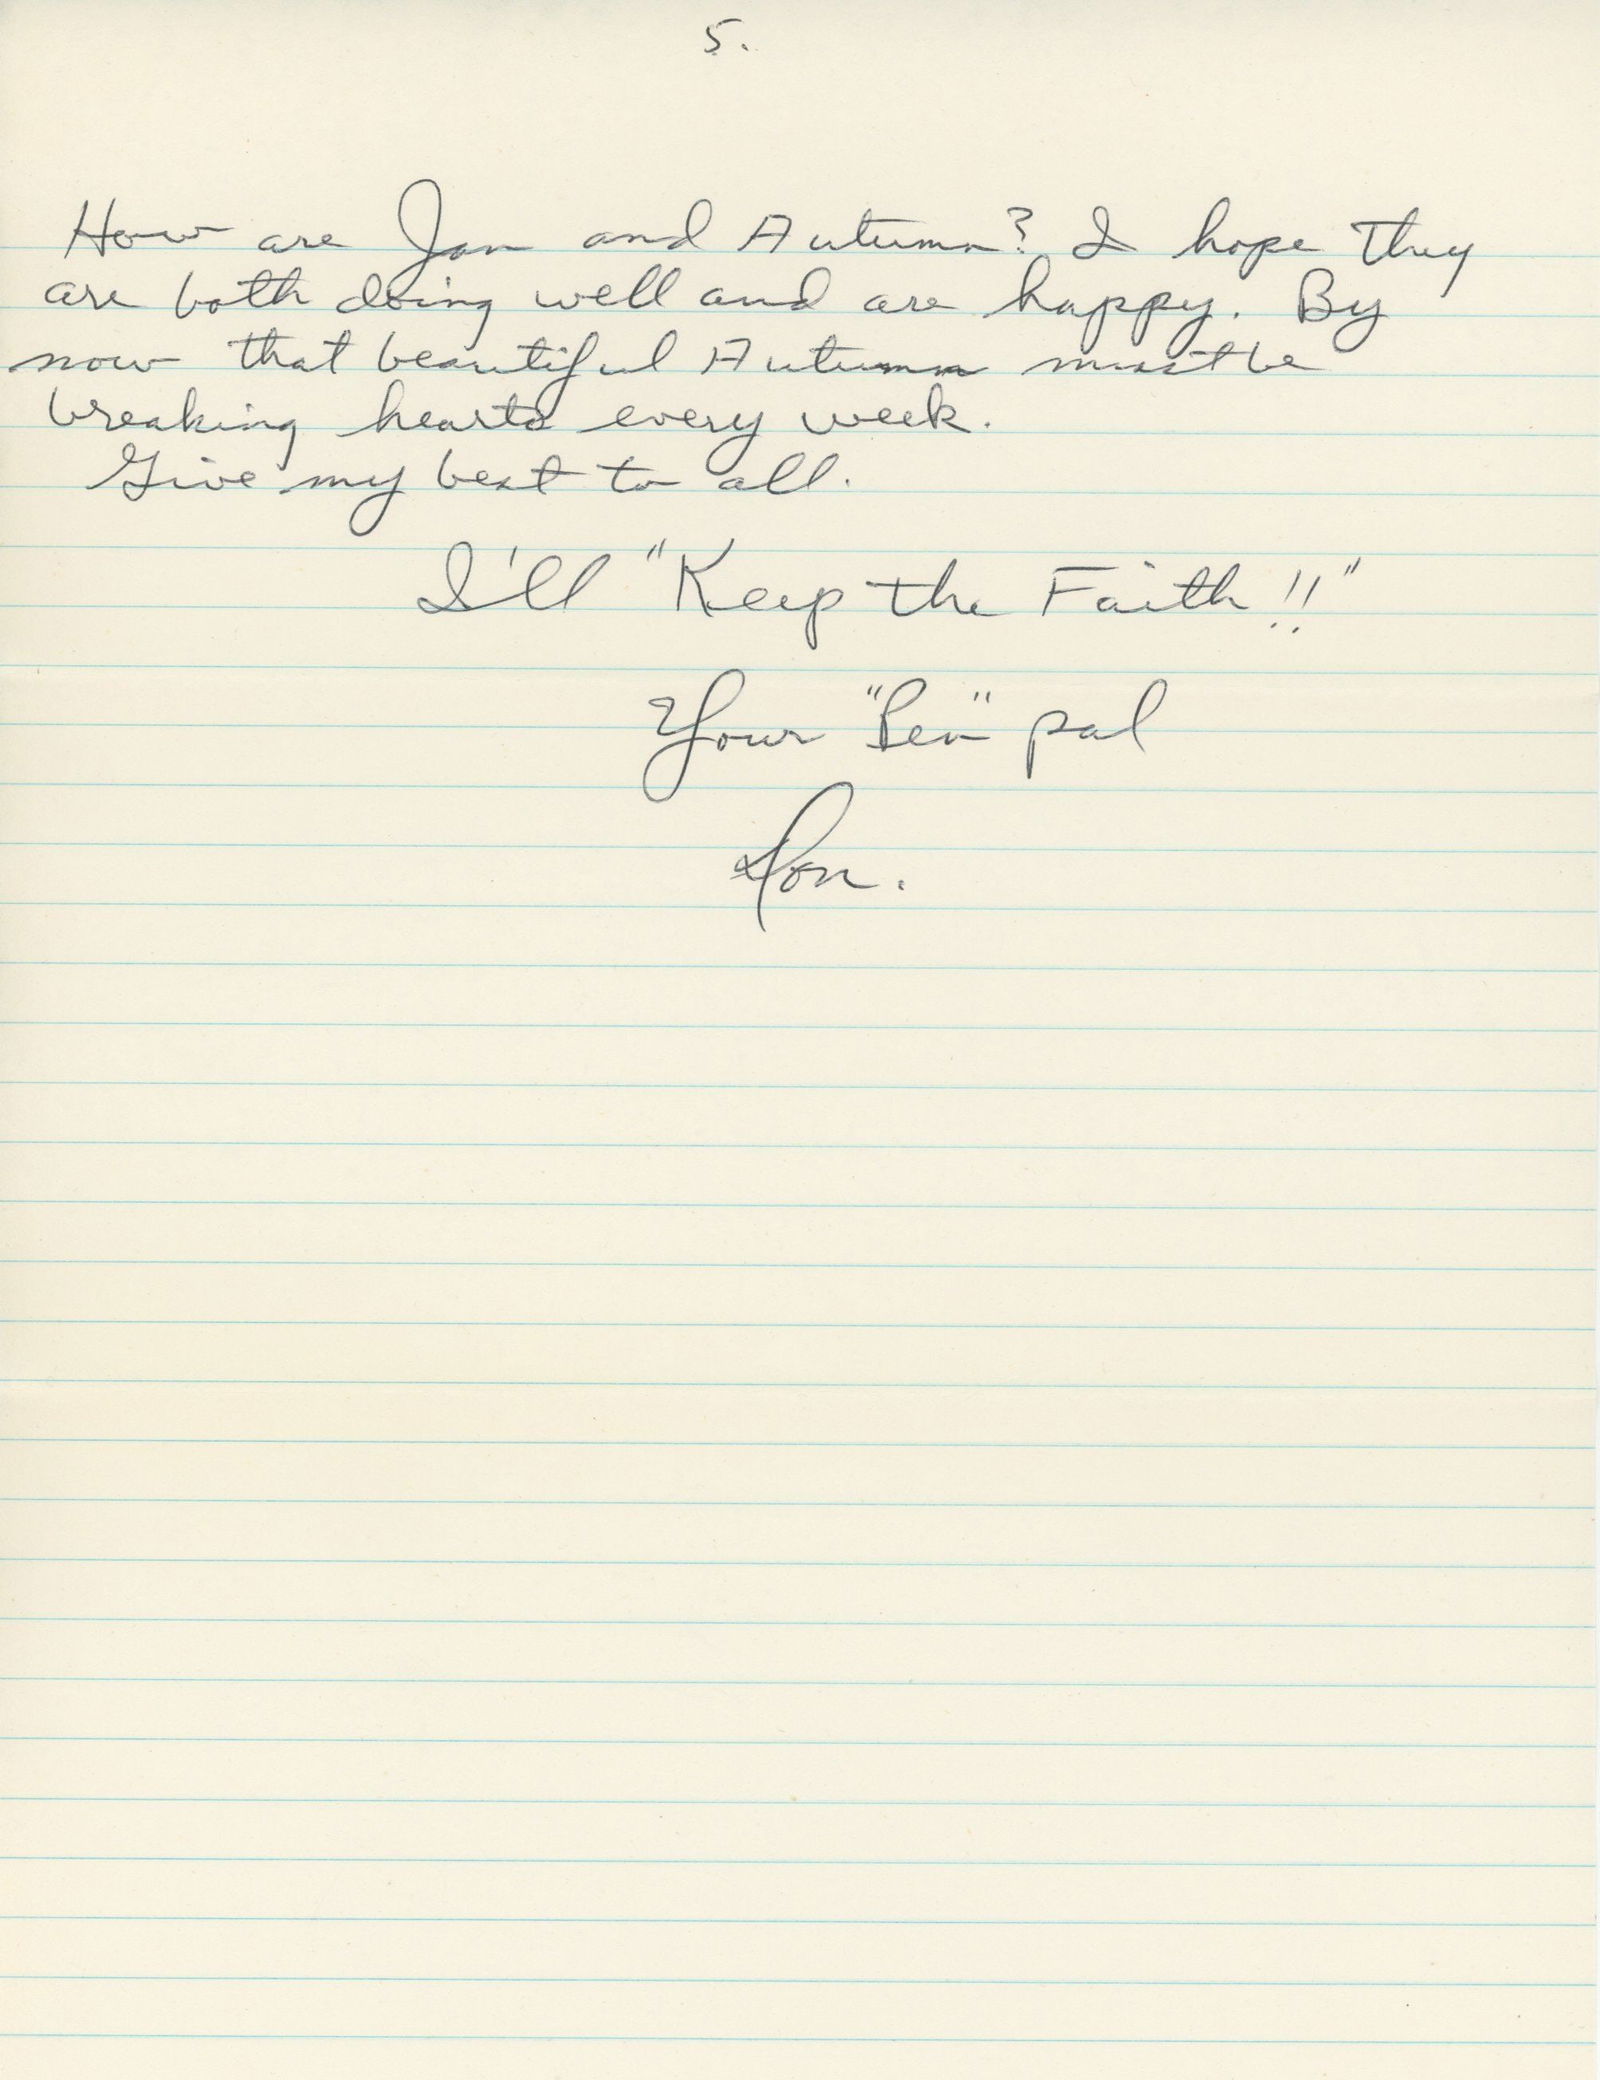 5.
How are Jan and Autumn? I hope they
are both doing well and are happy. By
now that beautiful Autumn must be
breaking hearts every week.
Give my best to all.
I'll "Keep the Faith!!"
Your "Pen" pal
Don.